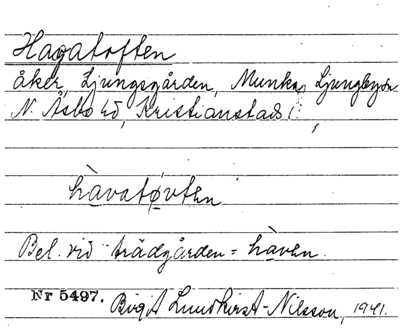 Hagatoften
åker, Ljungsgården, Munka Ljungbysn
N. Åsbo hd, Kristianstads l.,
hàvatøvten
Bel. vid trädgården = hàven.
Nr 5497. Birgit Lundkvist-Nilsson, 1941.